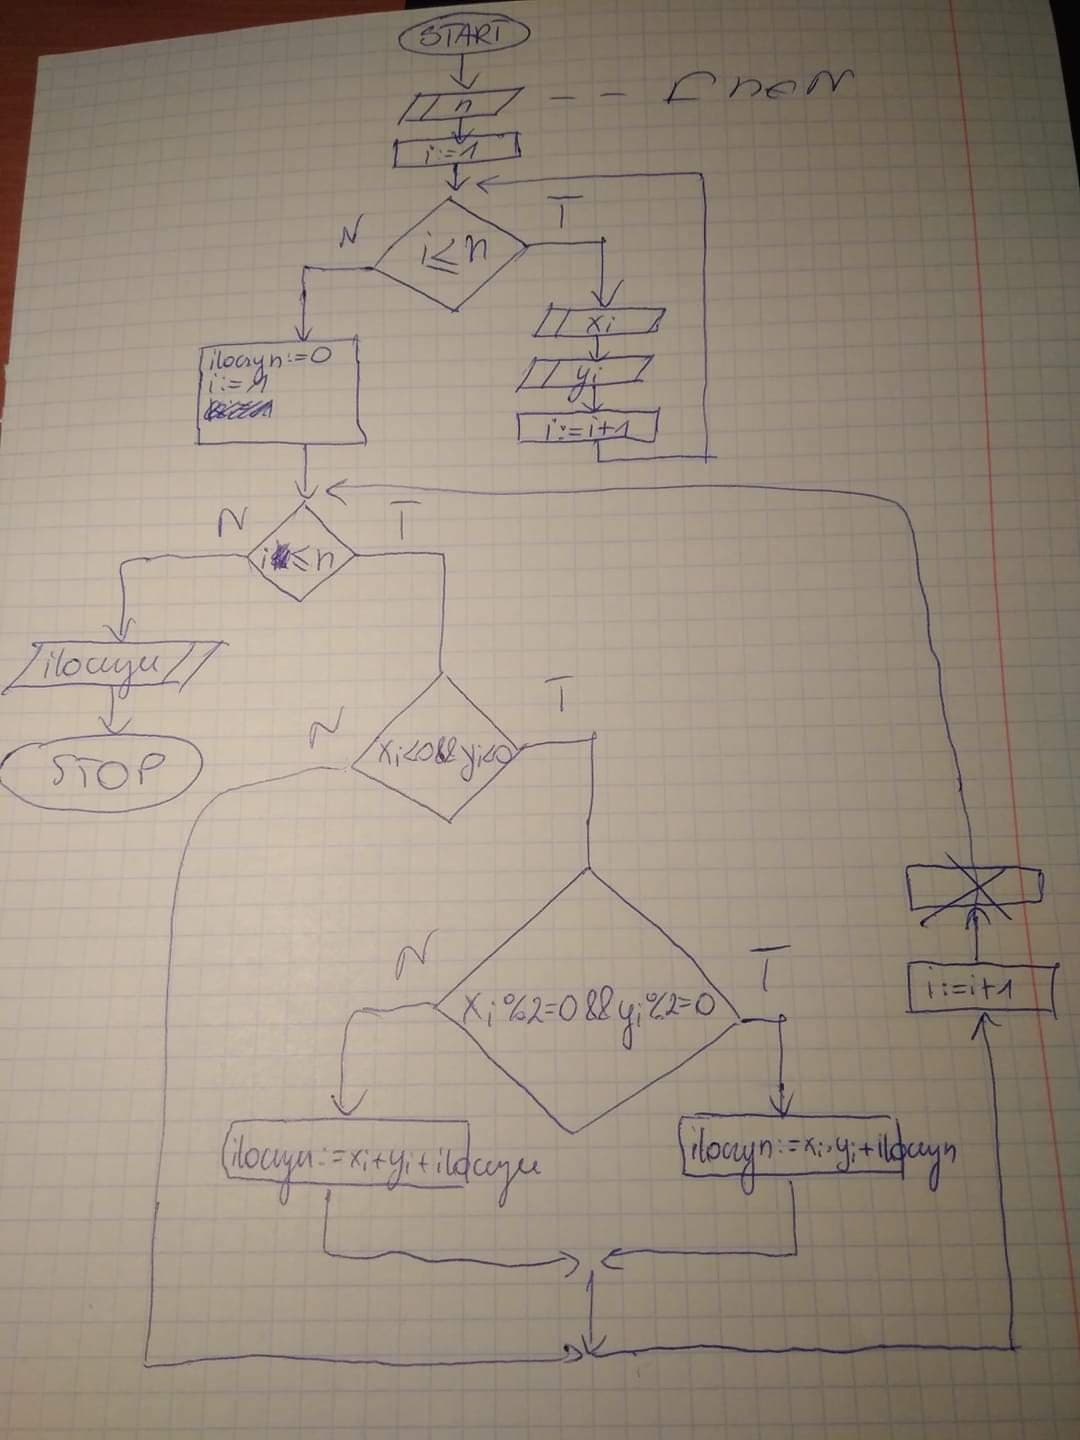 START
n -- [ n∈N
i:=1
N T
i≤n
xi
yi
i:=i+1
iloczyn:=0
i:=1
N T
i≤n
iloczyn
STOP
N T
xi<0&&yi<0
N T
xi%2=0&&yi%2=0
i:=i+1
iloczyn:=xi+yi+iloczyn
iloczyn:=xi·yi+iloczyn